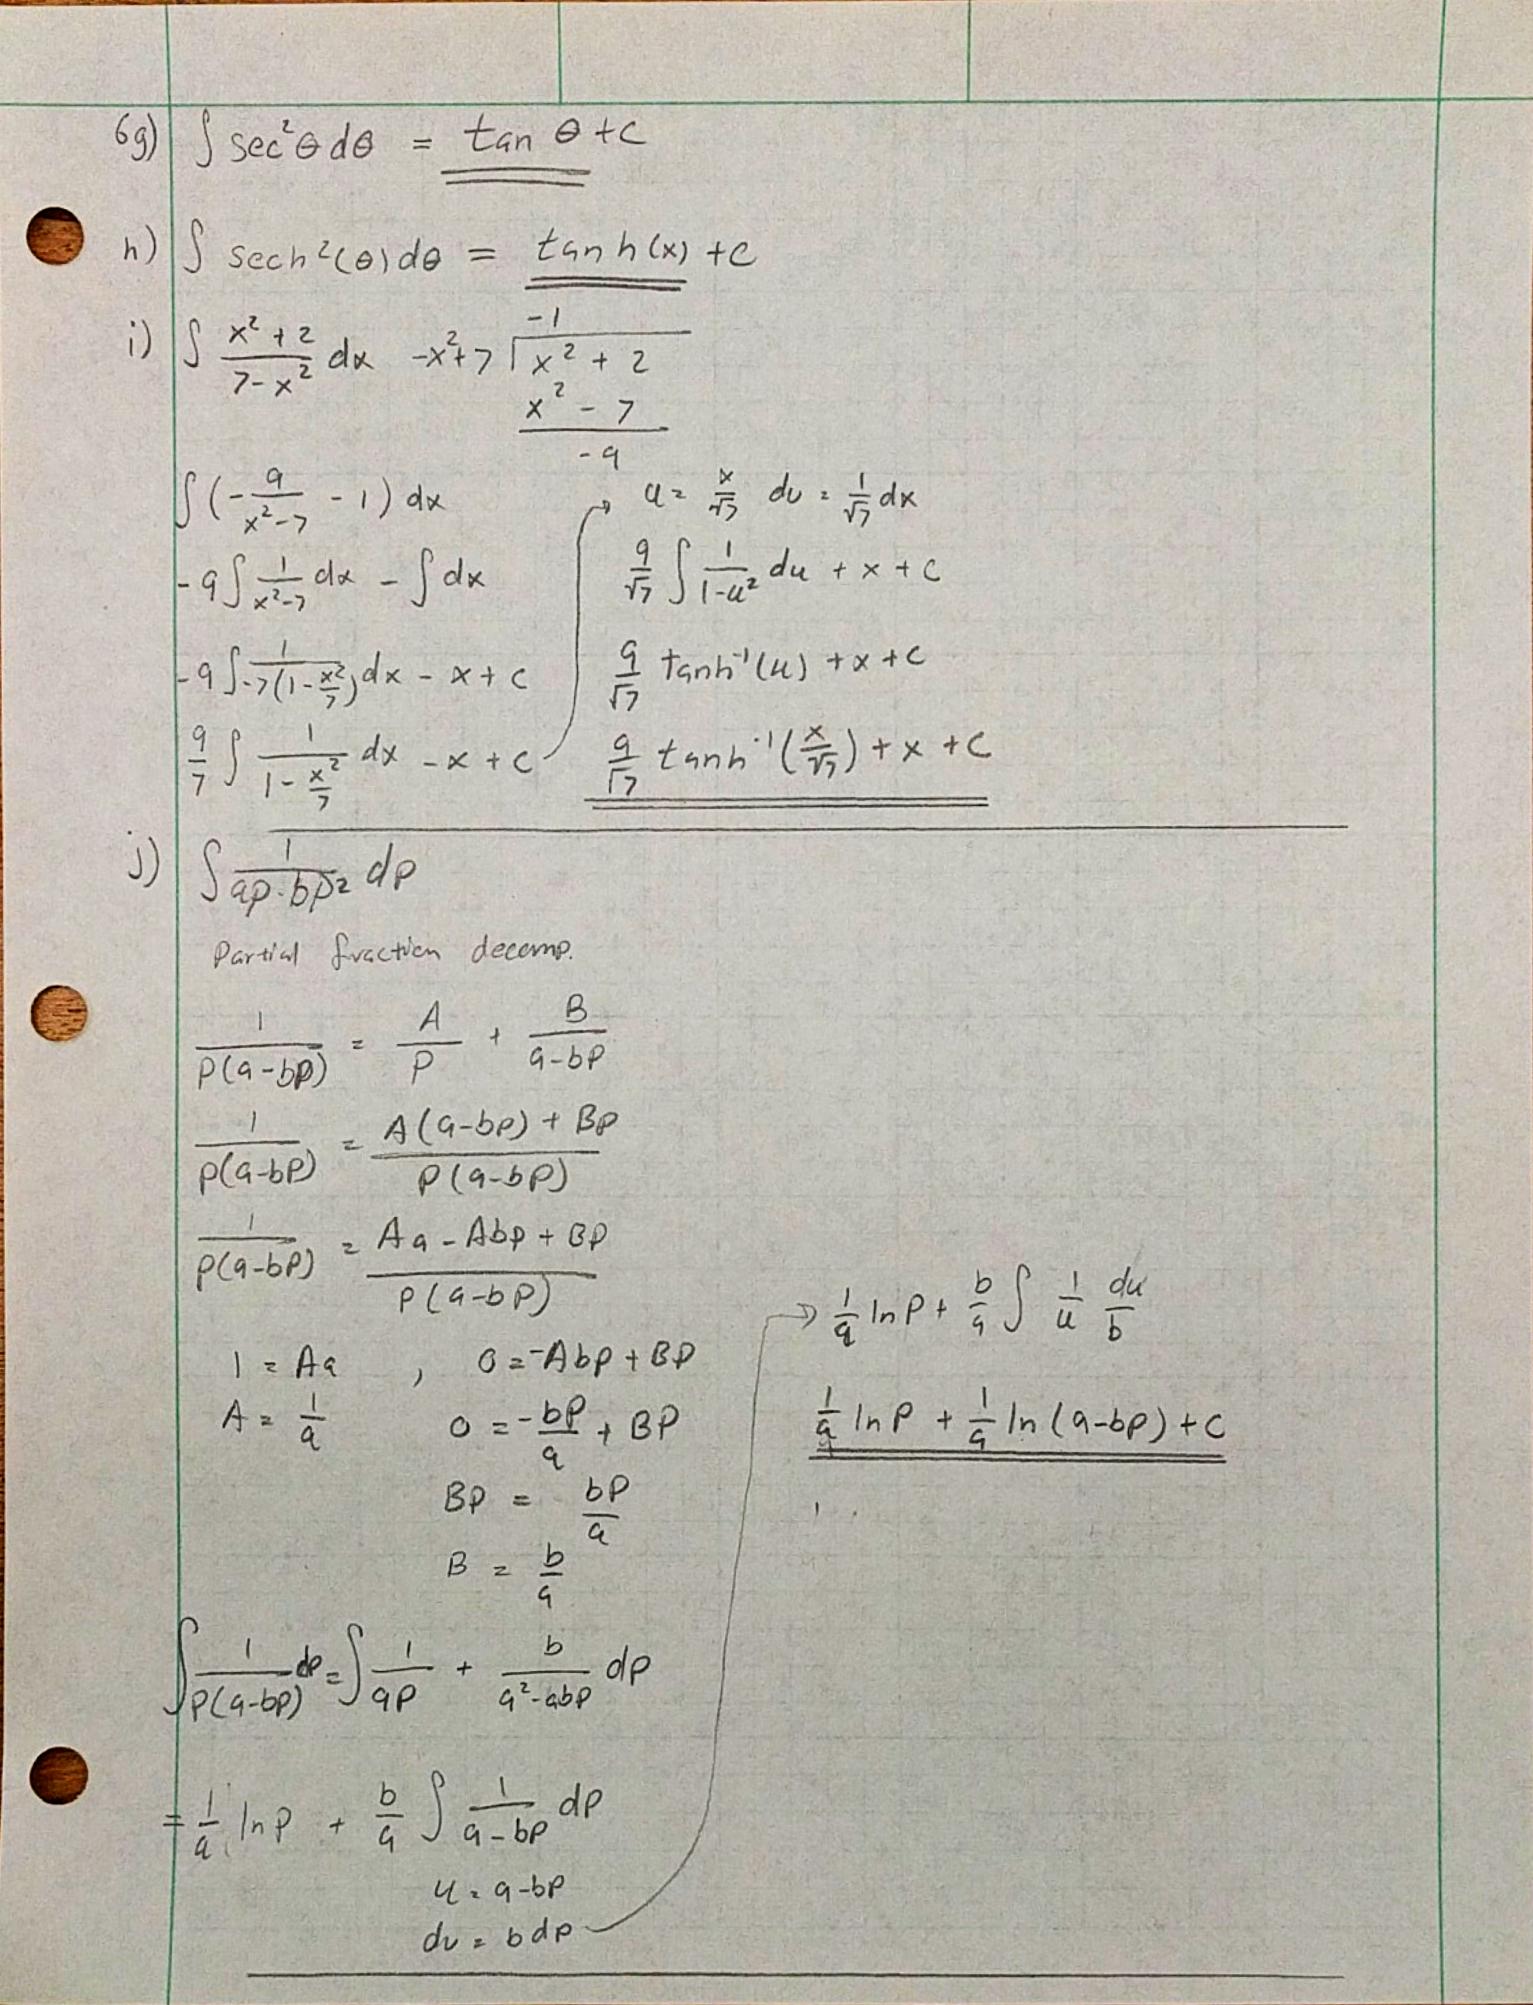 6g) ∫ sec²θ dθ = tan θ + c
h) ∫ sech²(θ) dθ = tanh(x) + c
i) ∫ (x² + 2)/(7 - x²) dx
-1
-x² + 7 | x² + 2
x² - 7
-9
∫ (-9/(x² - 7) - 1) dx
-9 ∫ 1/(x² - 7) dx - ∫ dx
-9 ∫ 1/(-7(1 - x²/7)) dx - x + c
9/7 ∫ 1/(1 - x²/7) dx - x + c
→ u = x/√7 du = 1/√7 dx
9/√7 ∫ 1/(1 - u²) du + x + c
9/√7 tanh⁻¹(u) + x + c
9/√7 tanh⁻¹(x/√7) + x + c
j) ∫ 1/(ap - bp²) dp
Partial fraction decomp.
1/(P(a - bP)) = A/P + B/(a - bP)
1/(P(a - bP)) = (A(a - bP) + BP)/(P(a - bP))
1/(P(a - bP)) = (Aa - AbP + BP)/(P(a - bP))
1 = Aa , 0 = -AbP + BP
A = 1/a 0 = -bP/a + BP
BP = bP/a
B = b/a
∫ 1/(P(a - bP)) dp = ∫ 1/(aP) + b/(a² - abP) dp
= 1/a ln P + b/a ∫ 1/(a - bP) dp
u = a - bP
du = b dp
→ 1/a ln P + b/a ∫ 1/u du/b
1/a ln P + 1/a ln (a - bP) + c